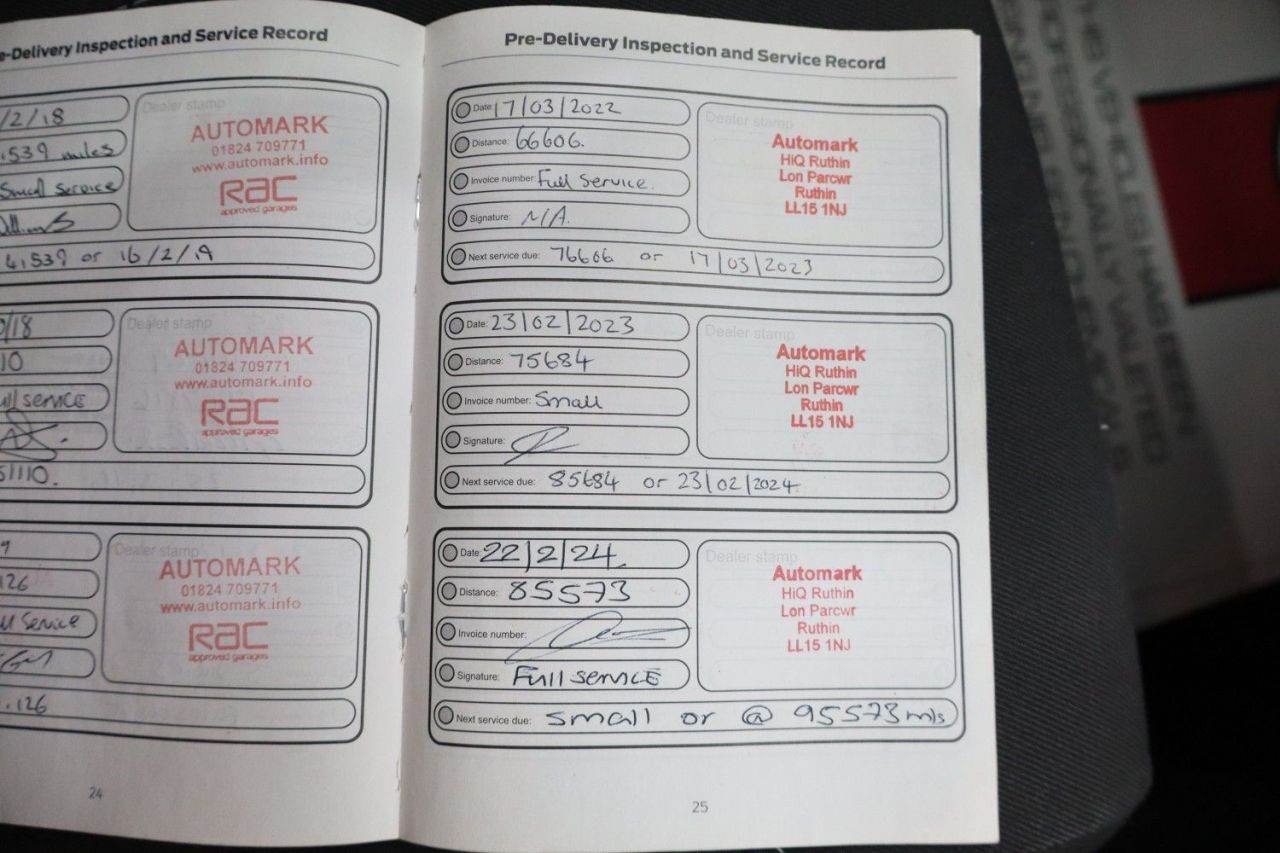 e-Delivery Inspection and Service Record
/2/18
.539 miles
Small service
4,539 or 16/2/19
Dealer stamp
AUTOMARK
01824 709771
www.automark.info
RAC
approved garages
0/18
110
ull service
51110.
Dealer stamp
AUTOMARK
01824 709771
www.automark.info
RAC
approved garages
9
126
ull service
.126
Dealer stamp
AUTOMARK
01824 709771
www.automark.info
RAC
approved garages
24
Pre-Delivery Inspection and Service Record
Date: 17/03/2022
Distance: 66606.
Invoice number: Full Service.
Signature: N/A.
Next service due: 76606 or 17/03/2023
Dealer stamp
Automark
HiQ Ruthin
Lon Parcwr
Ruthin
LL15 1NJ
Date: 23/02/2023
Distance: 75684
Invoice number: Small
Signature:
Next service due: 85684 or 23/02/2024
Dealer stamp
Automark
HiQ Ruthin
Lon Parcwr
Ruthin
LL15 1NJ
Date: 22/2/24
Distance: 85573
Invoice number:
Signature: Full service
Next service due: small or @ 95573 mls
Dealer stamp
Automark
HiQ Ruthin
Lon Parcwr
Ruthin
LL15 1NJ
25
THIS VEHICLE HAS BEEN
PROFESSIONALLY VALETED